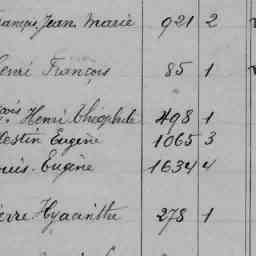 rançois Jean Marie 921 2
Henri François 85 1
çois Henri Théophile 498 1
lestin Eugène 1065 3
ouis Eugène 1634 4
ierre Hyacinthe 278 1